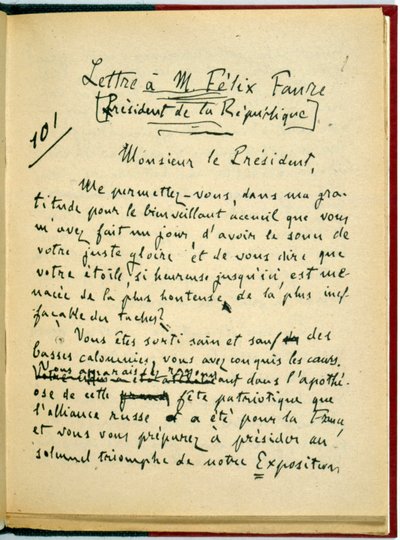 Lettre à M. Félix Faure
[Président de la République]
10'
Monsieur le Président,
Me permettez-vous, dans ma gra-
titude pour le bienveillant accueil que vous
m'avez fait un jour, d'avoir le souci de
votre juste gloire et de vous dire que
votre étoile, si heureuse jusqu'ici, est me-
nacée de la plus honteuse, de la plus inef-
façable des taches?
Vous êtes sorti sain et sauf des
basses calomnies, vous avez conquis les cœurs.
Vous apparaissez rayonn
ant dans l'apothé-
ose de cette fête patriotique que
l'alliance russe a été pour la France
et vous vous préparez à présider au
solennel triomphe de notre Exposition